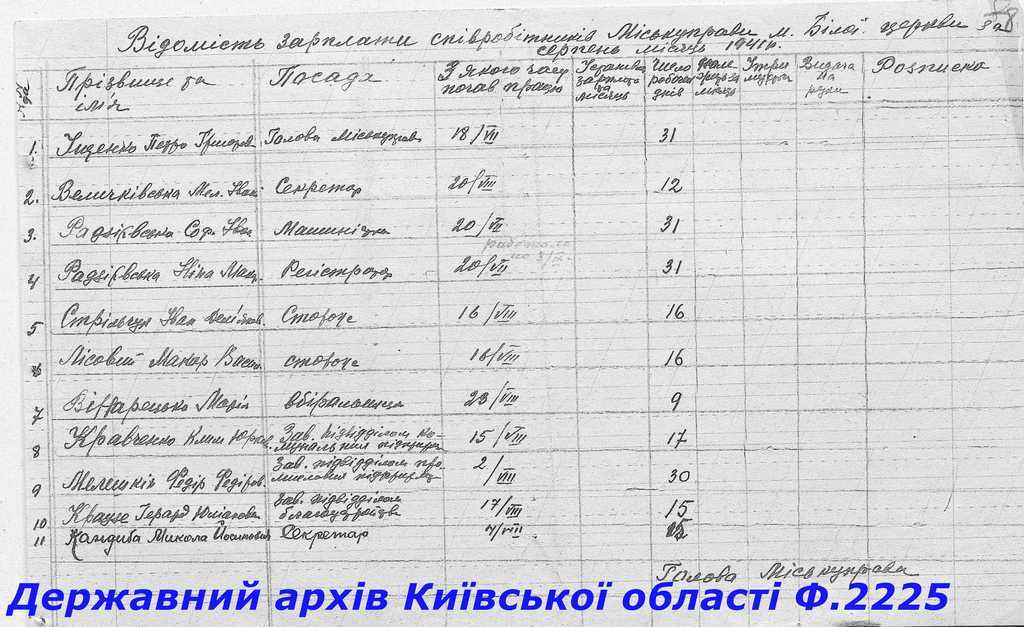 Відомість зарплати співробітників Міськуправи м. Білої церкви за
серпень місяць 1941 р.
Прізвище та імя Посада З якого часу почав працю Установл зарплата на місяць Число робочих днів місяць Утри Видача на руки Розписка
1. Петро Григоров Голова міськуправ 18/VII 31
2. Величківська Мел. Іван Секретар 20/VIII 12
3. Радзієвська Соф. Іван Машиністка 20/VII 31
4 Радзієвська Ніна Макс. Регістратор 20/VII 31
5 Стрільчук Іван Сторож 16/VIII 16
6 Лісовий Макар Васил. сторож 16/VIII 16
7 Марія вбіральниця 23/VIII 9
8 Кравченко Клим Юрков. Зав. підвідділом ко-
мунальних підприєм 15/VIII 17
9 Мелешків Федір Федоров. Зав. підвідділом про-
мислових підприємс 2/VIII 30
10 Краузе Герард Юліанови Зав. підвідділом
благоустройства 17/VIII 15
11 Кандиба Микола Йосипович Секретар
Голова Міськуправи
Державний архів Київської області Ф.2225